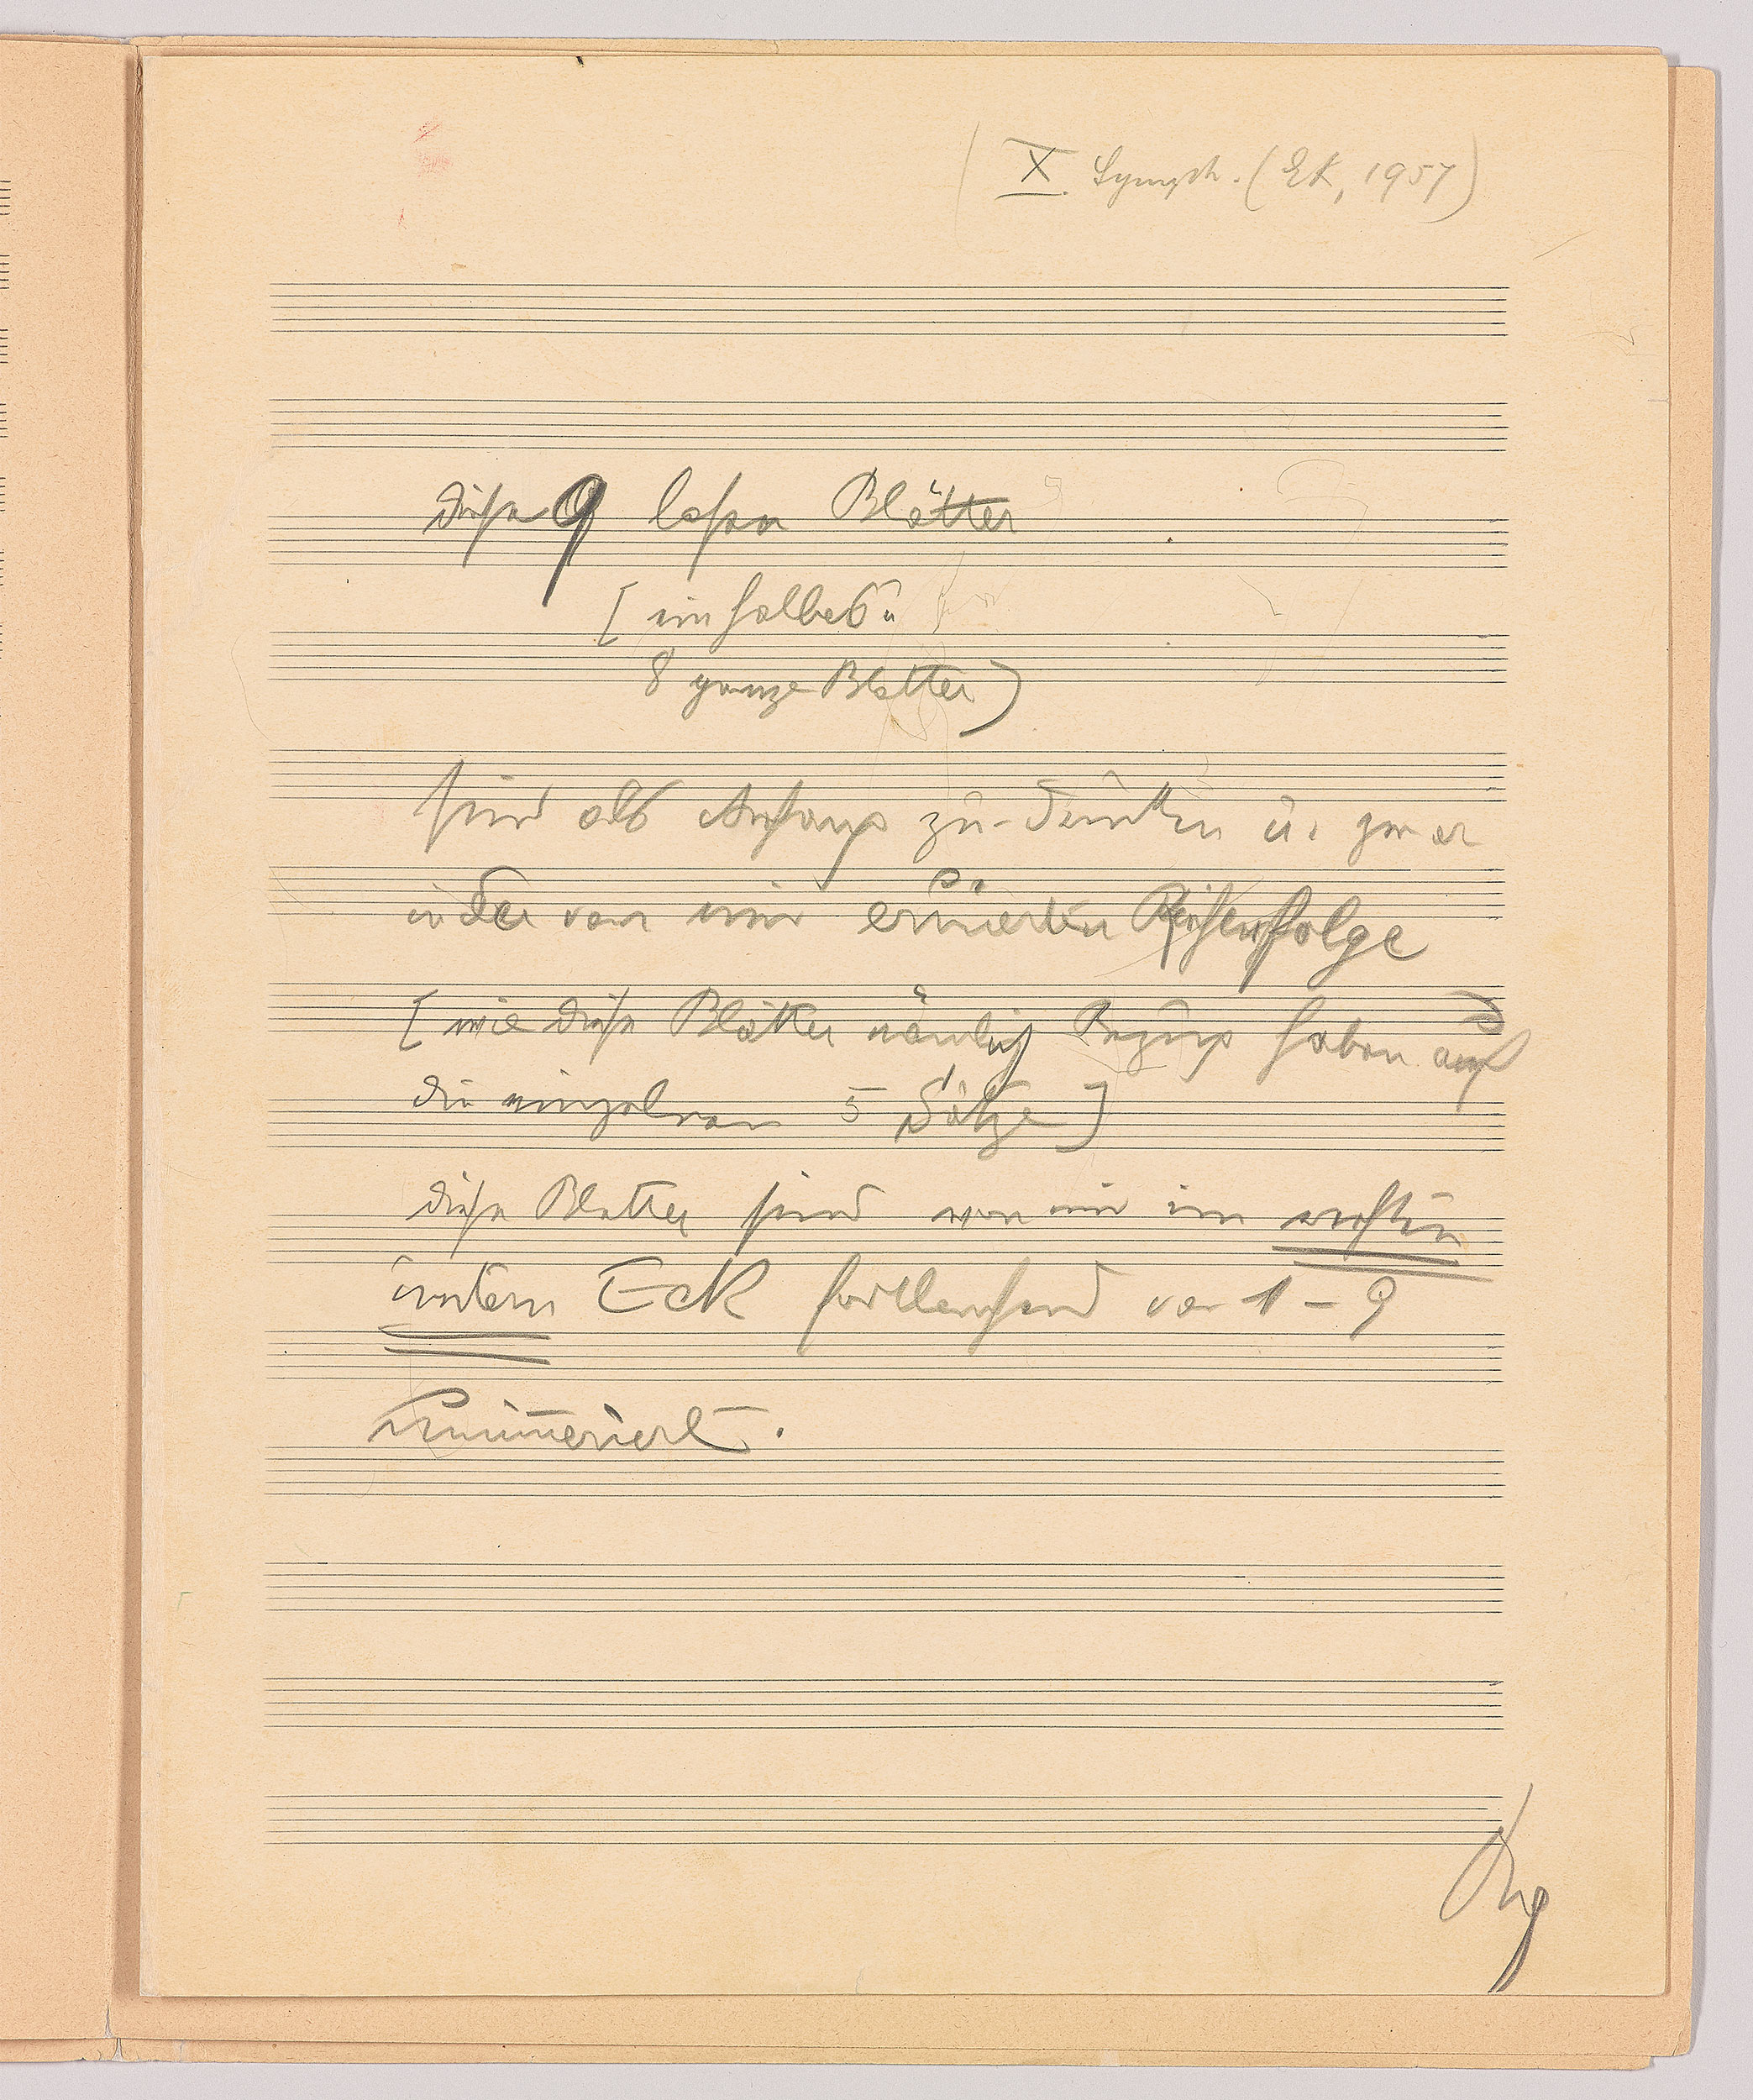 ( X. Symph. (EK, 1957)
diese 9 losen Blätter
[ ein halbes u
8 ganze Blätter)
sind als Anhang zu denken u. zwar
in der von mir eruierten Reihenfolge
[ wie diese Blätter nämlich Bezug haben auf
die einzelnen 5 Sätze ]
diese Blätter sind von mir im rechten
untern Eck fortlaufend von 1 – 9
numeriert.